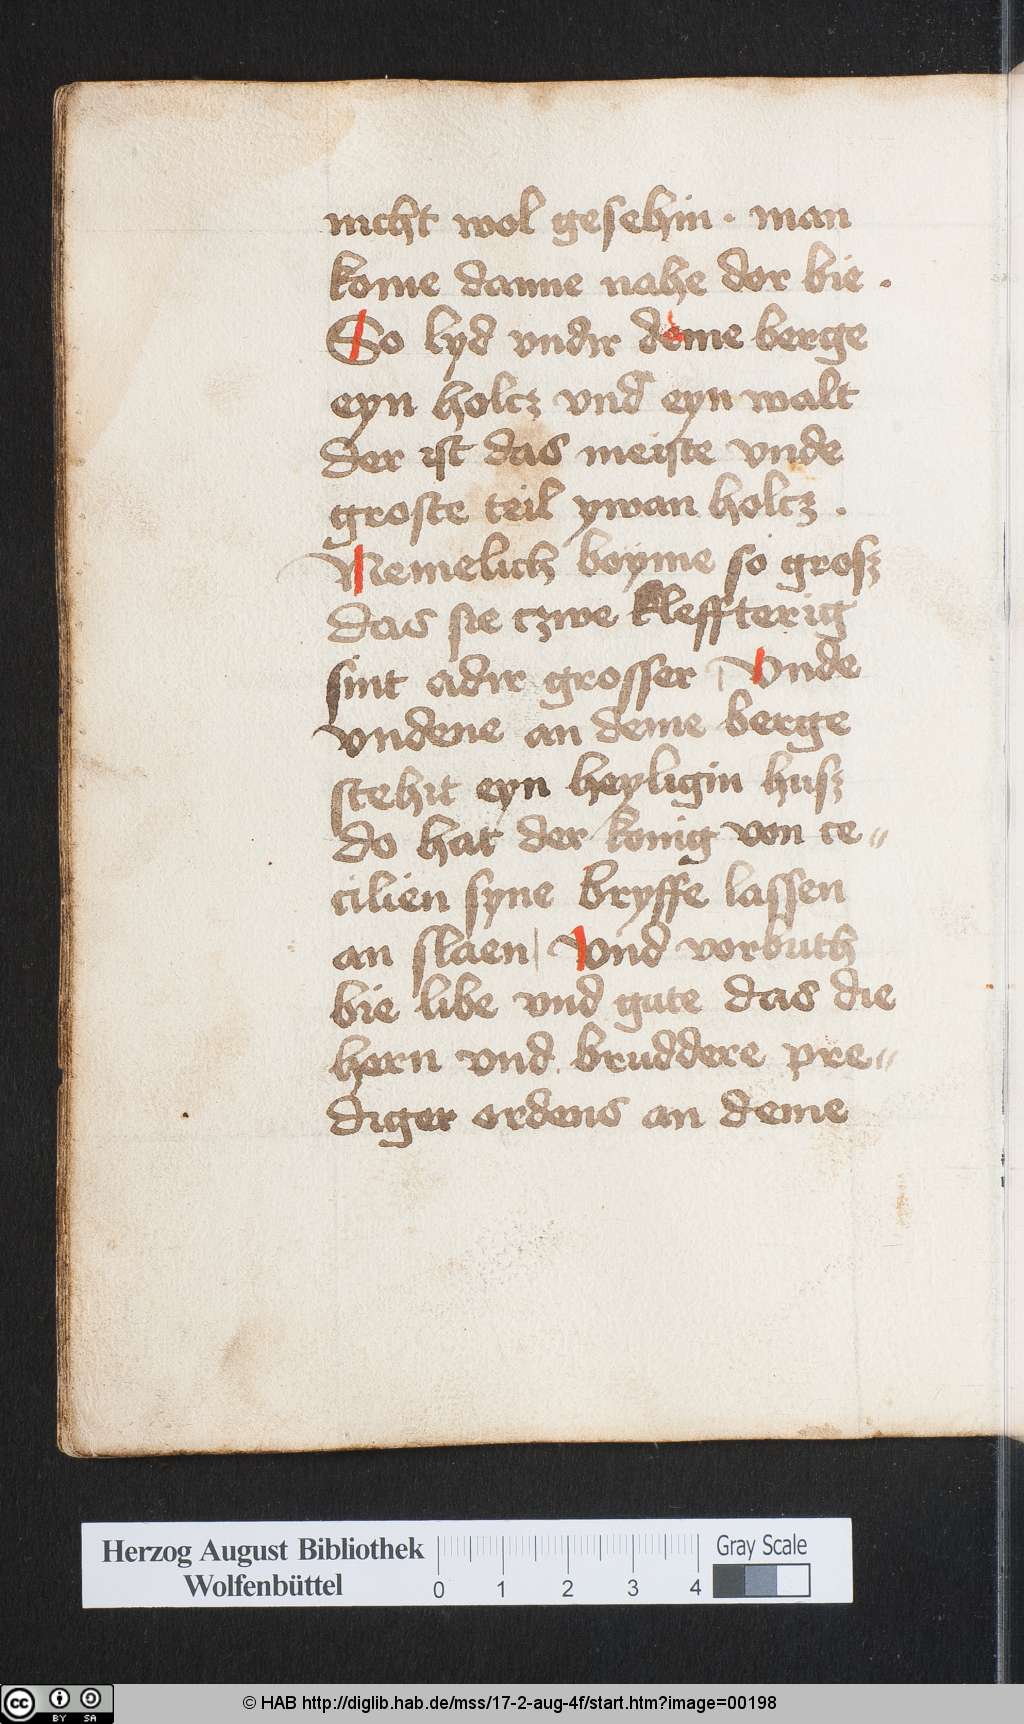 nicht wol gesehin · man
kome danne nahe dor bie .
So lyd vndir deme berge
eyn holcz vnd eyn walt
der ist das meiste vnde
groste teil ywan holcz .
Nemelich boyme so grosz
das sie czwe kleffterig
sint adir grosser | Vnde
vndene an deme berge
stehit eyn heyligin husz
do hat der konig von ce〃
cilien syne bryffe lassen
an slaen | Vnd vorbuth
bie libe vnd gute das die
hern vnd bruddere pre〃
diger ordens an deme
Herzog August Bibliothek
Wolfenbüttel
0 1 2 3 4
Gray Scale
cc BY SA
© HAB http://diglib.hab.de/mss/17-2-aug-4f/start.htm?image=00198